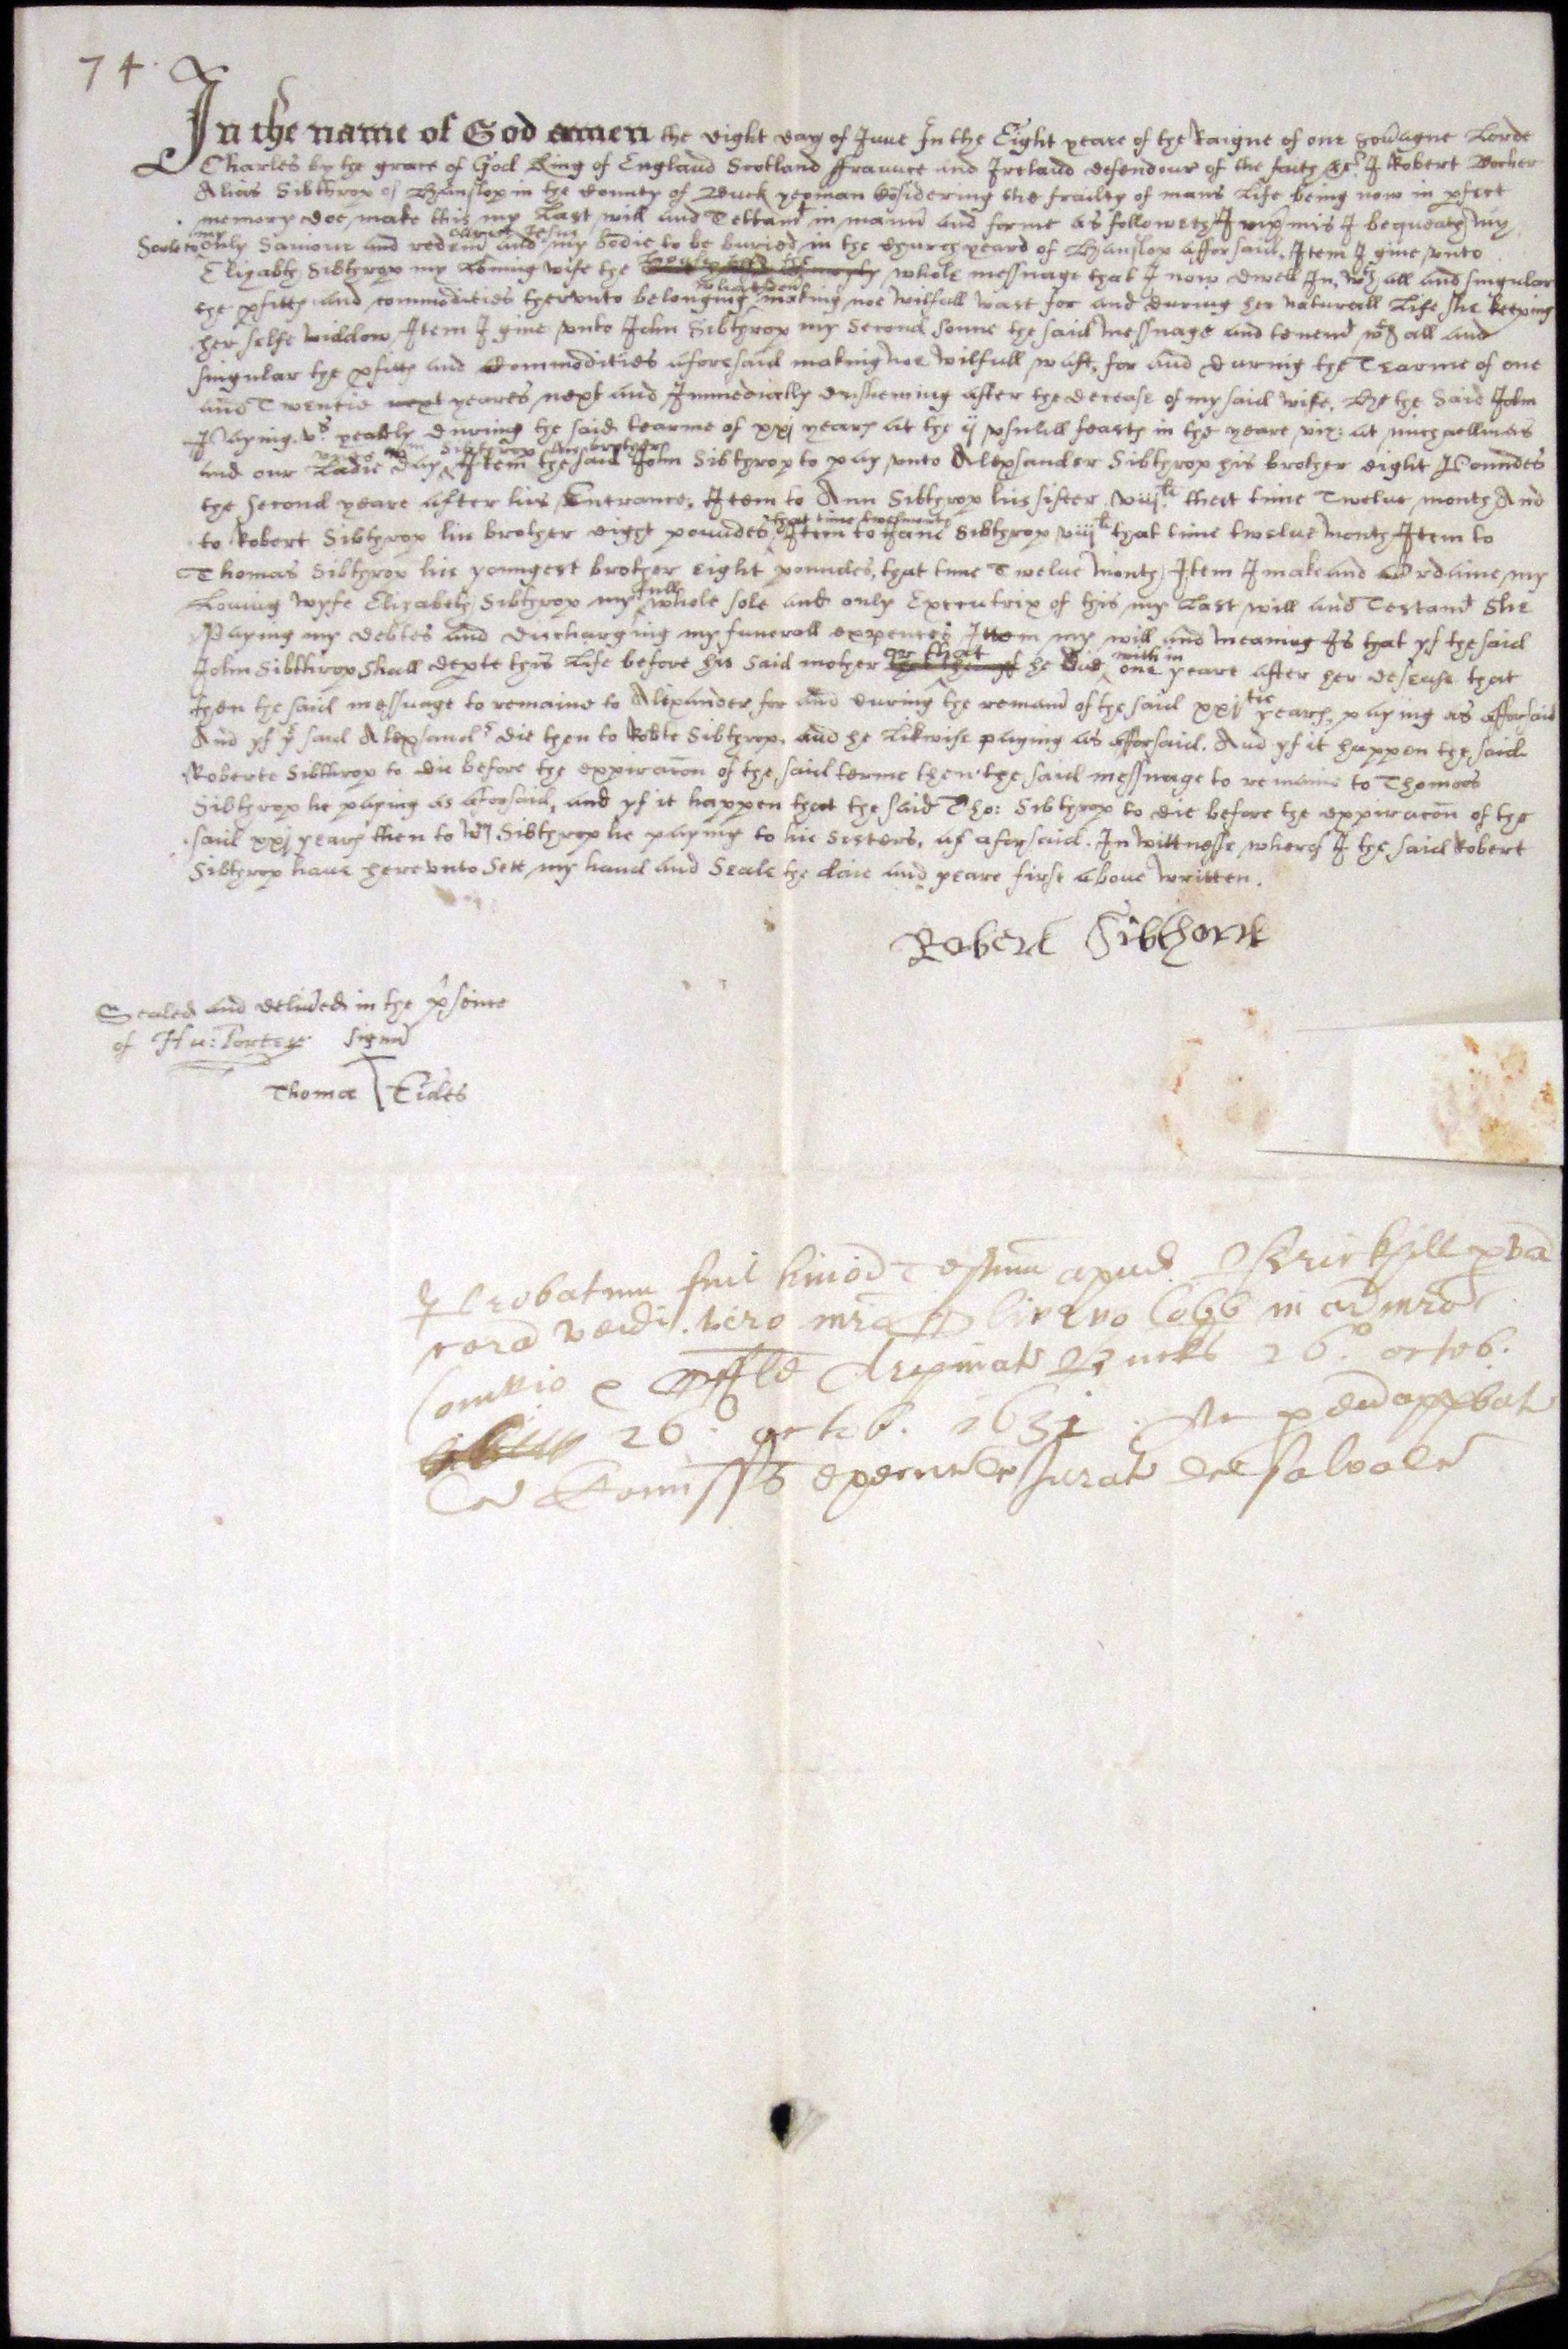 74.
In the name of God amen the eight day of June In the Eight yeare of the Raigne of our sovagne Lorde
Charles by the grace of God King of England Scotland ffraunce and Ireland defendour of the faith &c. I Robert
Alias Sibthrop of Hanslop in the County of Buck yeoman Cosidering the frailty of mans Life being now in pfect
memory doe make this my Last will and Testamt in mann and forme as followeth Inpmis I bequeath my
Soule to my only Saviour and redem Christ Jesus and my bodie to be buried in the Churchyeard of Hanslop afforsaid. Item I give vnto
Elizabth Sibthrop my Loving wife the whole messuage that I now dwell In, wth all and singular
the pfitts and commodities thervnto belonging whatsoeu making noe wilfull wast for and during her naturall Life she keeping
her selfe widdow Item I give vnto John Sibthrop my Second sonne the said messuage and tenemt wth all and
singular the pfitts and Commodities aforesaid making noe wilfull wast, for and during the Tearme of one
and Twentie next yeares next and Immediatly ensheuing after the decease of my said wife, He the Said John
Paying vs yearly during the said tearme of xxj years at the ij vsuall feasts in the yeare viz: at michaellmas
and our Ladie day vnto Sibthrop his brother Item the said John Sibthrop to pay vnto Alexsander Sibthrop his brother eight Poundes
the second yeare after his Entrance, Item to Ann Sibthrop his sister viijli that time Twelue month And
to Robert Sibthrop his brother eight poundes that time twelmonth Item to Jane Sibthrop viijli that time twelue month Item to
Thomas Sibthrop his youngest brother eight poundes, that time Twelue month Item I make and Ordaine my
Loving wyfe Elizabeth Sibthrop my full whole sole and only Executrix of this my Last will and Testamt She
Paying my debtes and discharging my funerall expences Item my will and meaning Is that yf the said
John Sibthrop Shall depte this Life before his said mother or that he die with in one yeare after her desease that
then the said messuage to remaine to Alexander for and during the remaind of the said xxjtie years, paying as afforsaid
And yf ye said Alexsandr die then to Robte Sibthrop, and he Likwise paying as afforsaid. And yf it happen the said
Roberte Sibthrop to die before the expiracon of the said terme then the said messuage to remaine to Thomas
Sibthrop he paying as aforsaid, and yf it happen that the said Tho: Sibthrop to die before the expiracon of the
said xxj years then to Wm Sibthrop he paying to his Sisters, as aforsaid. In wittnesse wherof I the said Robert
Sibthrop haue here vnto Sett my hand and Seale the daie and yeare first aboue written.
Robert Sibthorp
Sealed and deliued in the psence
of Hu: Porter signu
Thomæ Eides
Probatum fuit hmod Testum apud Brickhill
cora vendi. viro mro Cobb in
Officlo Archinat Bucks 26o octob.
26o octob. 1632
Comiss execut Jurat salvo